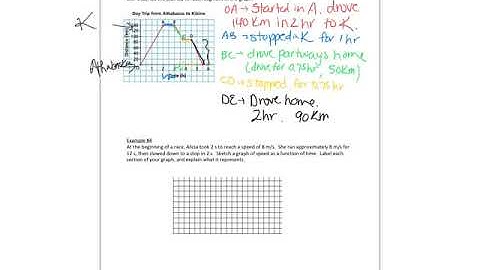 Day Trip from Athabasca to Kikino
K
Athabasca
OA → Started in A, drove
140 km in 2 hr to K.
AB → stopped in K for 1 hr
BC → drove partways home
(drove for 0.75 hr, 50 km)
CD → stopped for 0.75 hr
DE → Drove home.
2hr. 90 Km
Example #4
At the beginning of a race, Alicia took 2 s to reach a speed of 8 m/s. She ran approximately 8 m/s for
12 s, then slowed down to a stop in 2 s. Sketch a graph of speed as a function of time. Label each
section of your graph, and explain what it represents.